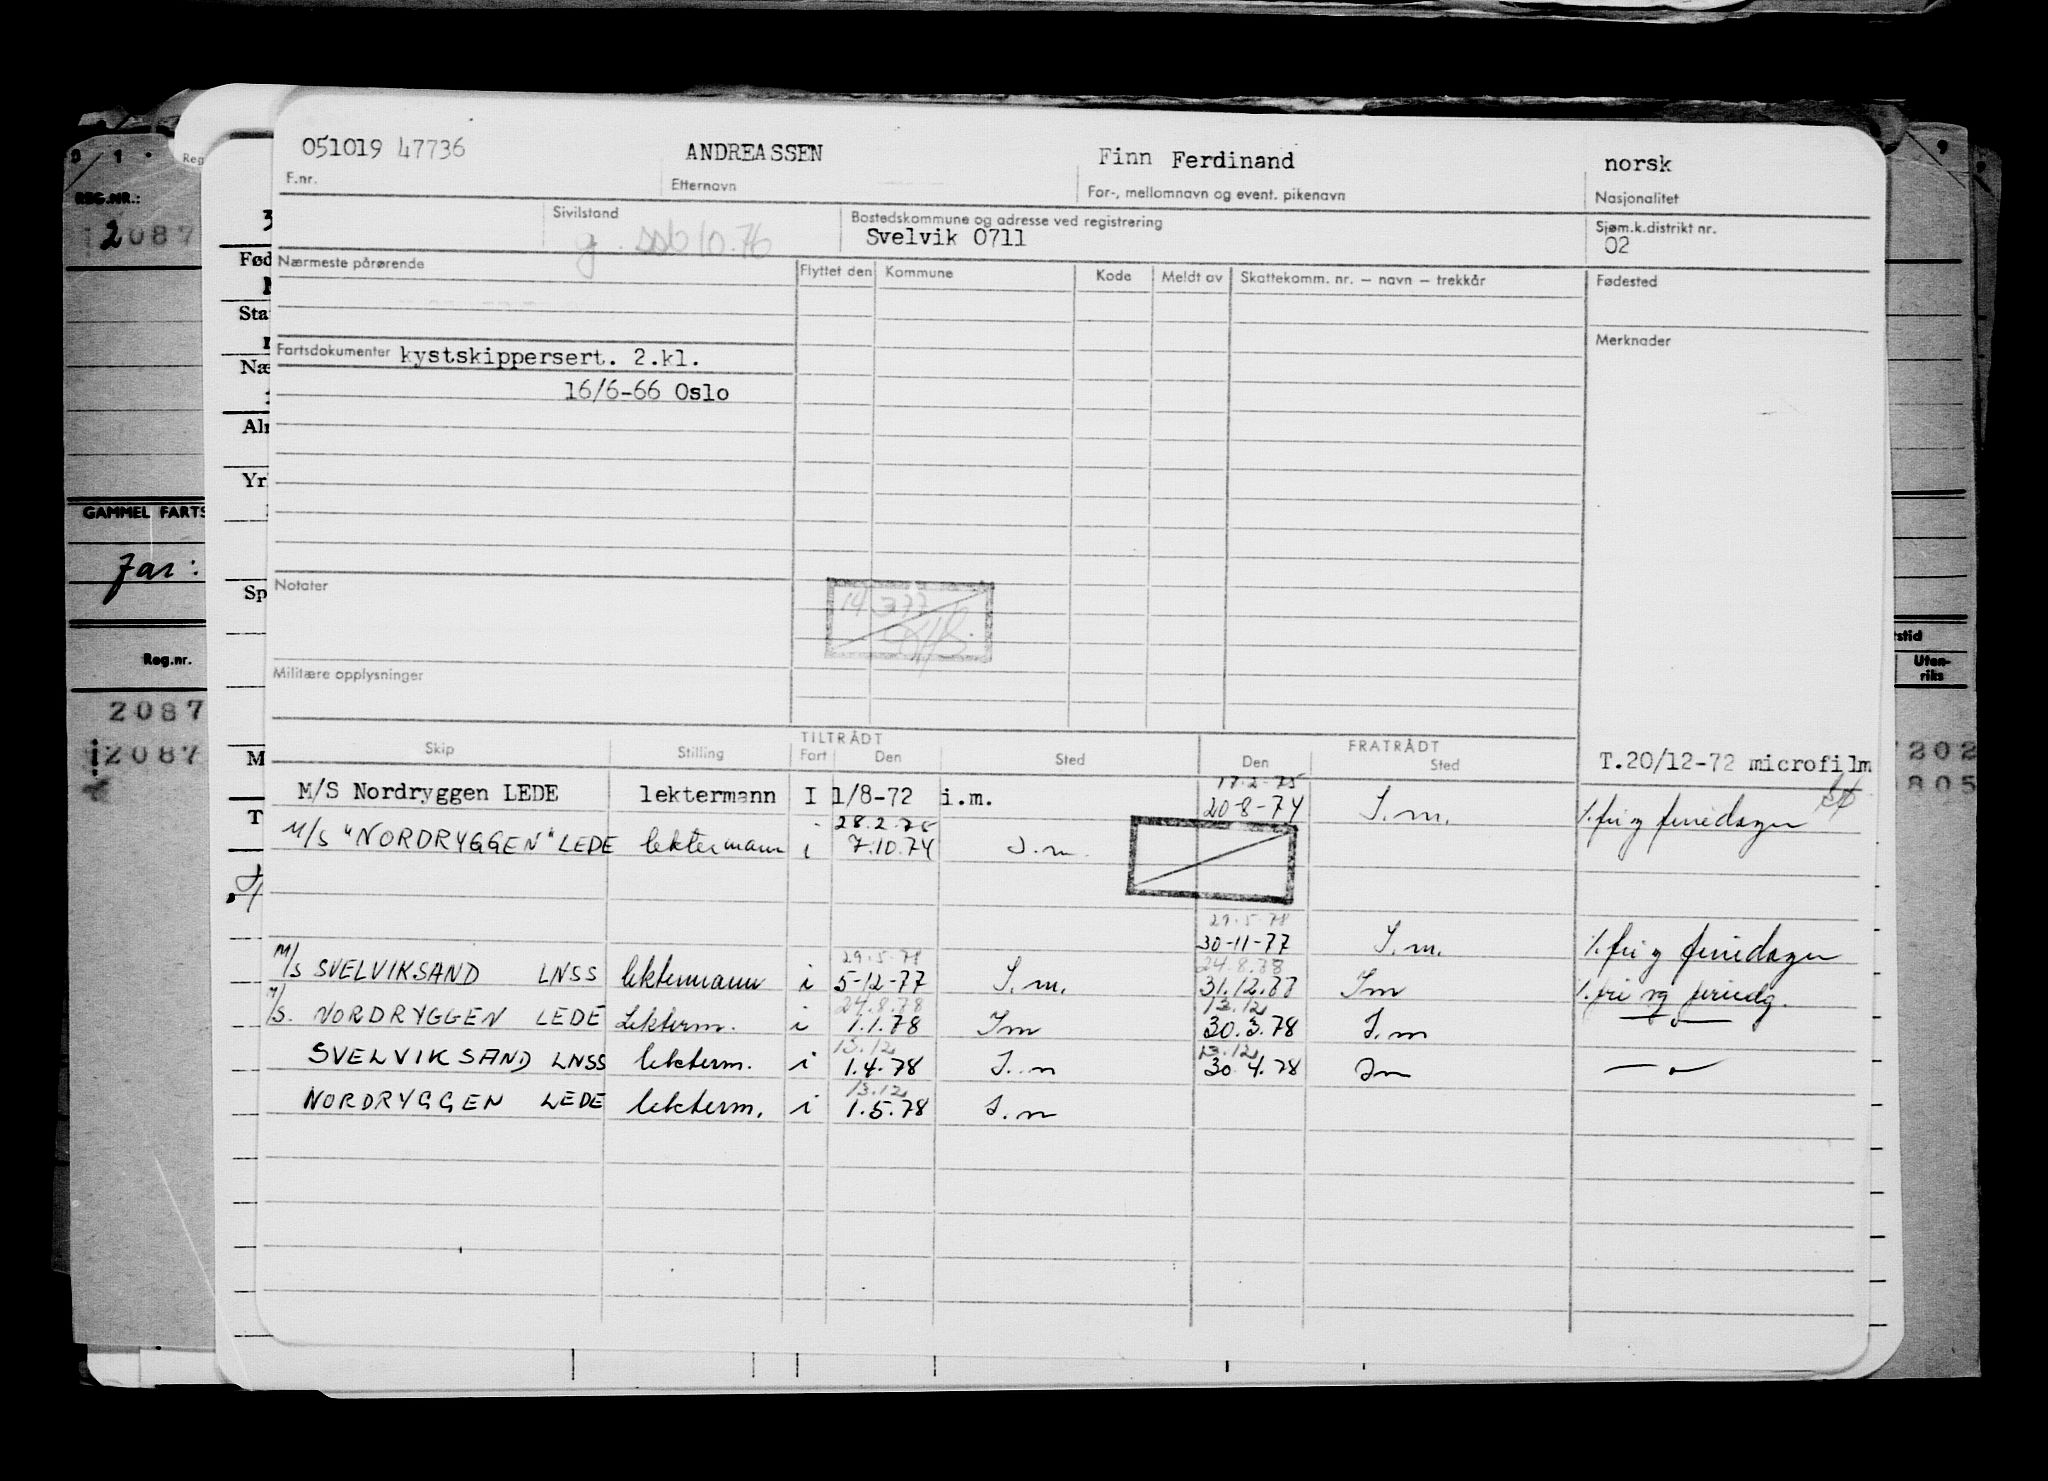 051019 47736 ANDREASSEN Finn Ferdinand norsk
F.nr. Etternavn For-, mellomnavn og event. pikenavn Nasjonalitet
Sivilstand Bostedskommune og adresse ved registrering Sjøm.k.distrikt nr.
g. SSB 10.76 Svelvik 0711 02
Nærmeste pårørende Flyttet den Kommune Kode Meldt av Skattekomm. nr. – navn – trekkår Fødested
Merknader
Fartsdokumenter kystskippersert. 2.kl.
16/6-66 Oslo
Notater
14.3.77
Militære opplysninger
TILTRÅDT FRATRÅDT
Skip Stilling Fart Den Sted Den Sted
T.20/12-72 microfilm
17.2.75
M/S Nordryggen LEDE lektermann I 1/8-72 i.m. 20-8-74 I.m. %.fri og feriedager
28.2.75
M/S "NORDRYGGEN" LEDE lektermann i 7.10.74 I.m.
29.5.78
30-11-77 I.m. %.fri og feriedager
29.5.78 24.8.78
M/S SVELVIKSAND LNSS lektermann i 5-12-77 I.m. 31.12.77 Im %.fri og feriedg.
24.8.78 13.12
M/S. NORDRYGGEN LEDE Lekterm. i 1.1.78 Im 30.3.78 I.m
13.12 13.12
SVELVIKSAND LNSS lekterm. i 1.4.78 I.m 30.4.78 Im — " —
13.12
NORDRYGGEN LEDE lekterm. i 1.5.78 I.m
REG.NR.:
2087
GAMMEL FARTS
Jar:
Reg.nr.
2087
12087
Reg
Fød
Sta
Næ
Alm
Yrl
Sp
M
T
rstid
Uten-
riks
202
805